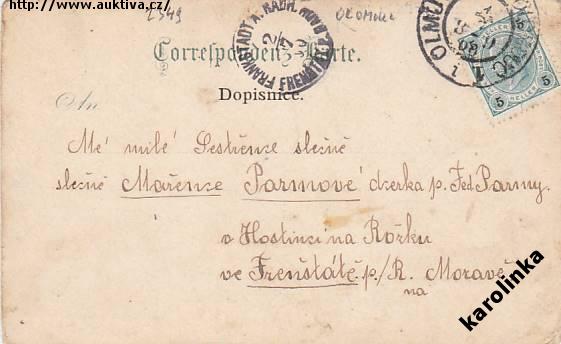 http://www.auktiva.cz/
2549
OLOMOUC
Correspondenz-Karte.
FRANKSTADT A. RADH.
2/5
OLMÜTZ 1
5 HELLER 5
An
Dopisnice.
Mé milé Sestřence slečně
slečně Mařence Parmové dcerka p. Fed. Parmy.
v Hostinci na Rožku
ve Frenštátě p./R. Moravě
na
karolinka